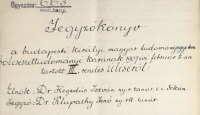 Jegyzőkönyv
a budapesti királyi magyar tudományegyetem
bölcsészettudományi karának 1907 évi február
tartott III. rendes üléséről
Elnök: Dr. Hegedüs István ny. r. tanár, e. i. dékán
Jegyző: Dr. Klupathy Jenő ny. rk. tanár